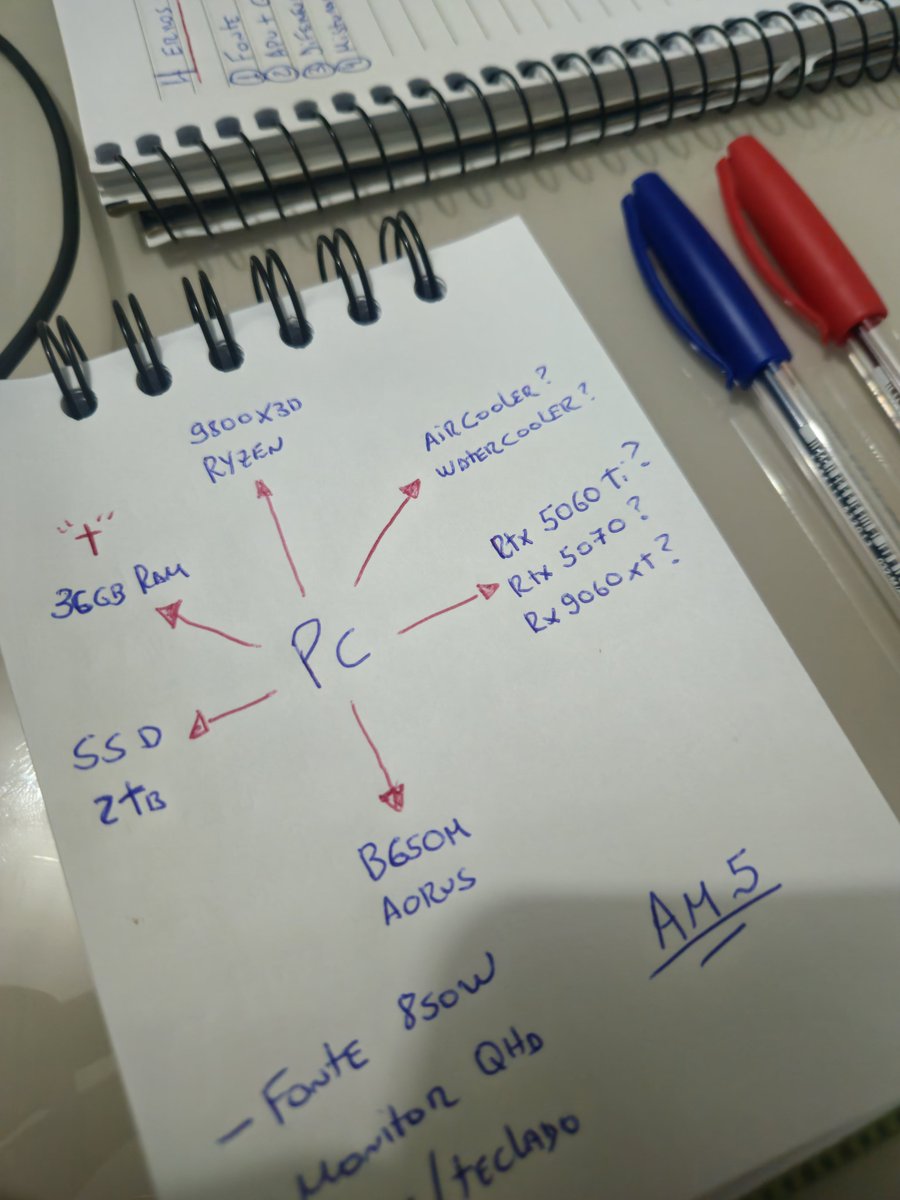 4 ERROS
① FONTE
② APU + 
③
④
9800X3D
RYZEN
AIRCOOLER?
WATERCOOLER?
"+"
36GB RAM
RTX 5060 Ti?
RTX 5070?
RX 9060 XT?
PC
SSD
2TB
B650M
AORUS
AM5
- FONTE 850W
MONITOR QHD
/TECLADO